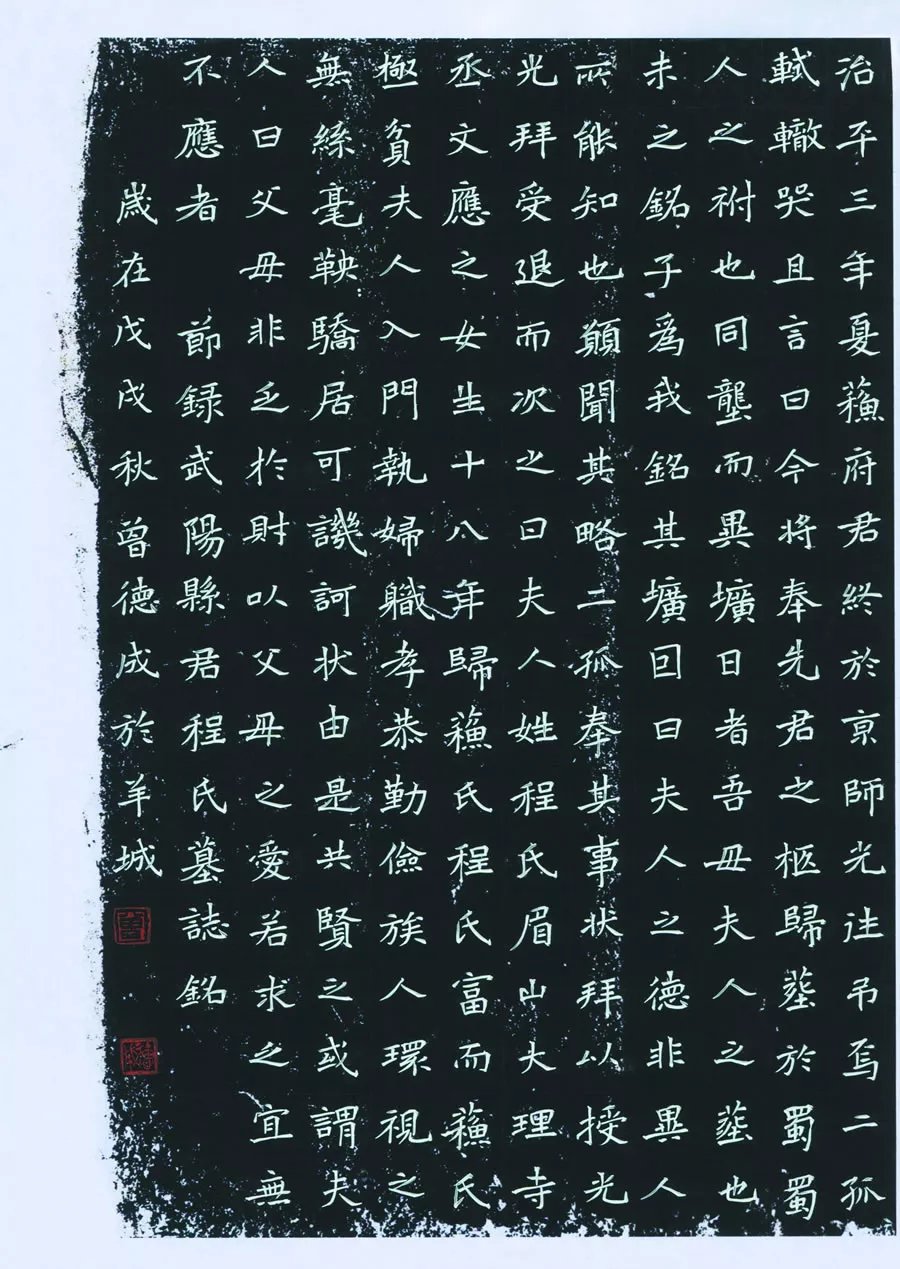 治平三年夏蘓府君終於亰師光往吊焉二孤
軾轍哭且言曰今將奉先君之柩歸塟於蜀蜀
人之祔也同壟而異壙日者吾母夫人之塟也
未之銘子為我銘其壙回曰夫人之德非異人
所能知也願聞其略二孤奉其事状拜以授光
光拜受退而次之曰夫人姓程氏眉山大理寺
丞文應之女生十八年歸蘓氏程氏富而蘓氏
極貧夫人入門執婦職孝恭勤儉族人環視之
無絲毫鞅驕居可譏訶状由是共賢之或謂夫
人曰父母非乏於財以父母之愛若求之宜無
不應者 節録武陽縣君程氏墓誌銘
歲在戊戌秋曾德成於羊城